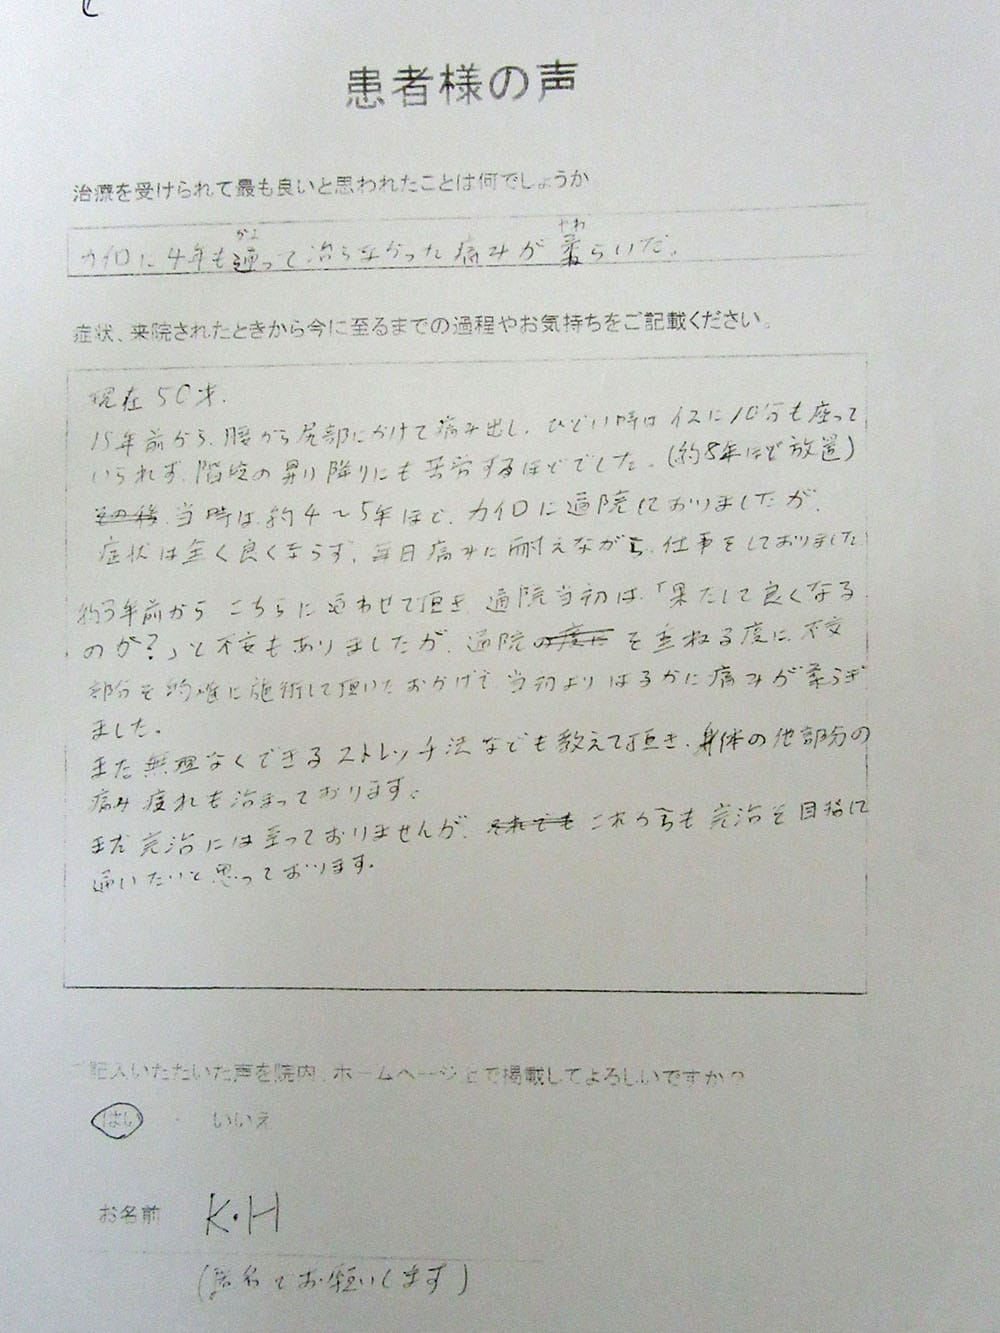 患者様の声
治療を受けられて最も良いと思われたことは何でしょうか
かよ やわ
カイロに4年も通って治らなかった痛みが柔らいだ。
症状、来院されたときから今に至るまでの過程やお気持ちをご記載ください。
現在50才.
15年前から、腰から尻部にかけて痛み出し、ひどい時はイスに10分も座って
いられず、階段の昇り降りにも苦労するほどでした。(約8年ほど放置)
その後 当時は約4～5年ほど、カイロに通院しておりましたが、
症状は全く良くならず、毎日痛みに耐えながら、仕事をしておりました
約3年前からこちらに通わせて頂き、通院当初は「果たして良くなる
のか?」と不安もありましたが、通院の度に を重ねる度に、不安
部分を的確に施術して頂いたおかげで当初よりはるかに痛みが柔らぎ
ました。
また無理なくできるストレッチ法なども教えて頂き、身体の他部分の
痛み疲れも治まっております。
まだ完治には至っておりませんが、それでも これからも完治を目指して
通いたいと思っております。
ご記入いただいた声を院内、ホームページ上で掲載してよろしいですか?
はい ・ いいえ
お名前 K・H
(匿名でお願いします)